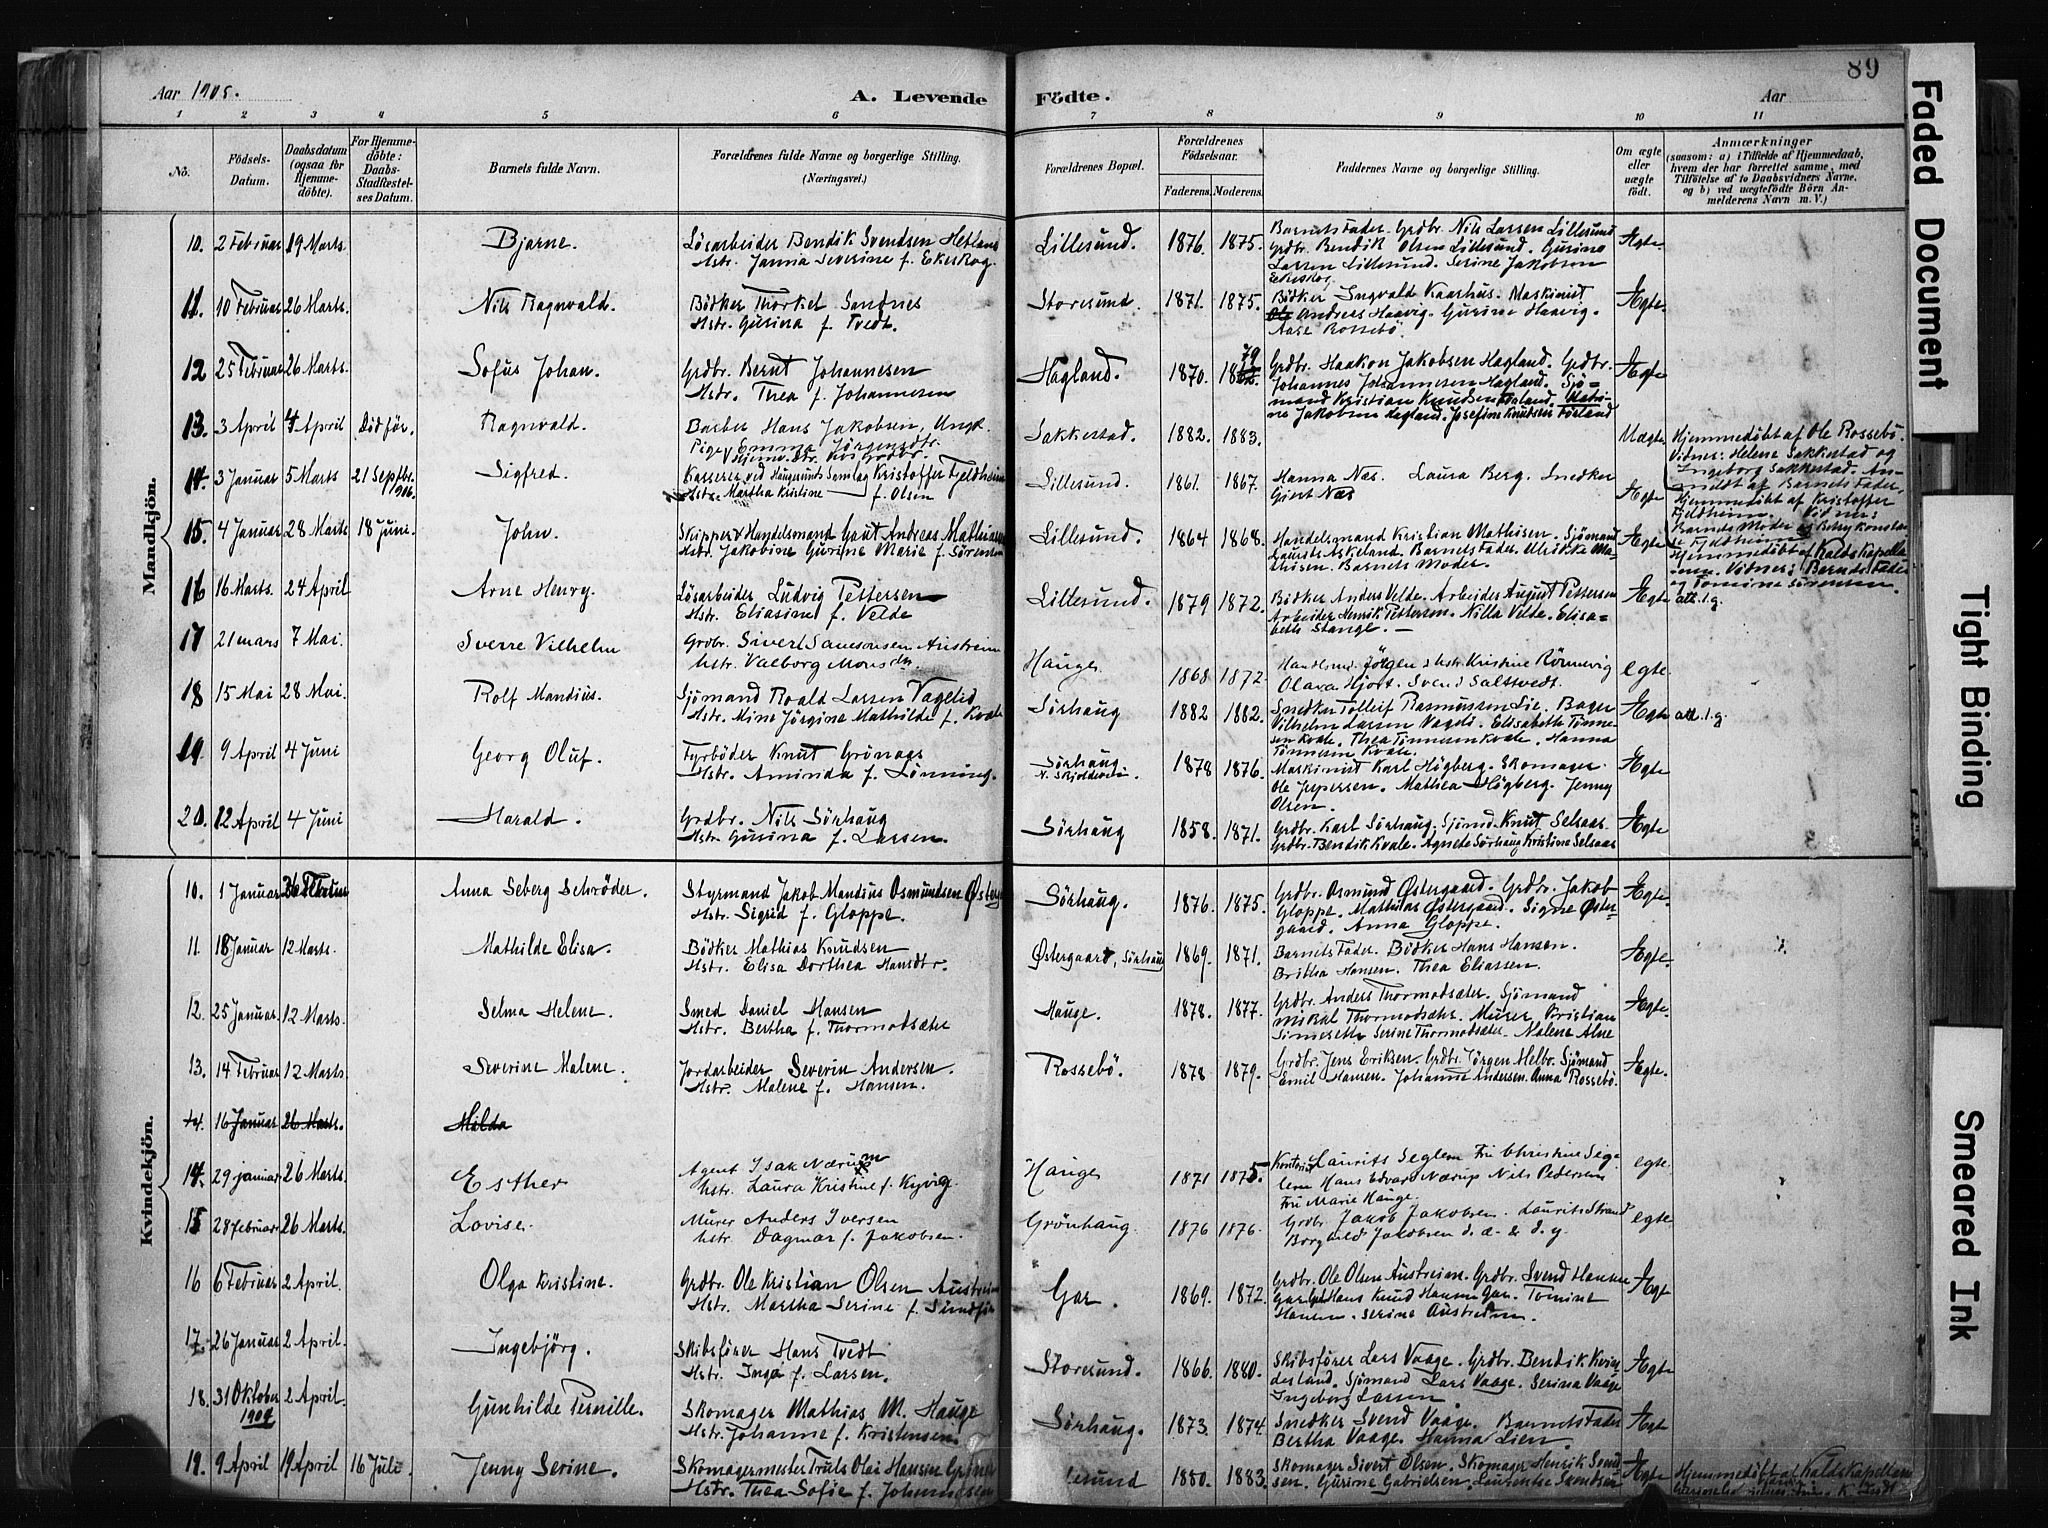 89
Aar 1905.
A. Levende
Födte.
Aar
1 2 3 4 5 6 7 8 9 10 11
No.
Födsels-Datum.
Daabsdatum (ogsaa for Hjemmedöbte).
For Hjemmedöbte: Daabs-Stadfæstelses Datum.
Barnets fulde Navn.
Forældrenes fulde Navne og borgerlige Stilling. (Næringsvei.)
Forældrenes Bopæl.
Forældrenes Födselsaar.
Faderens. Moderens.
Faddernes Navne og borgerlige Stilling.
Om ægte eller uægte födt.
Anmærkninger
(saasom: a) i Tilfælde af Hjemmedaab, hvem der har forrettet samme, med Tilföielse af to Daabsvidners Navne, og b) ved uægtefödte Börn Anmelderens Navn m. V.)
Mandkjön.
10. 2 Februar 19 Marts. Bjarne. Lösarbeider Bendik Svendsen Hetland Lillesund. 1876. 1875. Barnets Fader. Grdbr. Nils Larsen Lillesund Ægte
Hstr. Janna Severine f. Ekeskog. Grdbr. Bendik Olsen Lillesund. Gurine
Larsen Lillesund. Serine Jakobsen
Ekeskog
11. 10 Februar 26 Marts. Nils Ragnvald. Bödker Thorkel Sandnes Storesund. 1871. 1875. Bödker Ingvald Kaarhus. Maskinist Ægte
Hstr. Gurina f. Tvedt. Andreas Haavig. Gurine Haavig.
Aase Rossebö.
12 25 Februar 26 Marts. Sofus Johan. Grdbr. Bernt Johannesen Hagland. 1870. 1879 Grdbr. Haakon Jakobsen Hagland. Grdbr. Ægte
Hstr. Thea f. Johannesen Johannes Johannesen Hagland. Sjö=
mand Kristian Knudsen Förland.
Jakobsen Hagland. Josefine Knudsen Förland
13. 3 April 4 April Död för. Ragnvald. Barber Hans Jakobsen, Ungk. Sakkestad. 1882. 1883. Uægte Hjemmedöbt af Ole Rossebö.
Pige Emma Jörgensdtr. Vidner: Helene Sakkestad og
Ingeborg Sakkestad. An-
meldt af Barnets Fader.
14. 3 Januar 5 Marts 21 Septbr. 1906. Sigfred. Kasserer ved Haugesunds Samlag Kristoffer Fjeldheim Lillesund. 1861. 1867. Hanna Næs. Laura Berg. Snedker Ægte Hjemmedöbt af Kristoffer
Hstr. Martha Kristine f. Olsen Gjert Næs Fjeldheim. Vidner:
Barnets Moder og
Fjeldheim
15. 4 Januar 28 Marts 18 Juni. John. Skipper & Handelsmand Gaut Andreas Mathisen Lillesund. 1864 1868. Handelsmand Kristian Mathisen. Sjömand Ægte Hjemmedöbt af Kaldskapella-
Hstr. Jakobine Gurine Marie f. Sörensen Laurits Askeland. Barnets Fader. Ulrikke Ma- nen. Vidner: Barnets Fader
thisen. Barnets Moder. og Tomine Sörensen.
16 16 Marts. 24 April Arne Henry. Lösarbeider Ludvig Pettersen Lillesund. 1879 1872. Bödker Anders Velde. Arbeider August Pettersen Ægte att. l. g.
Hstr. Eliasine f. Velde Arbeider Henrik Pettersen. Nilla Velde. Elisa-
beth Stange.
17 21 mars 7 Mai. Sverre Vilhelm Grdbr. Sivert Samsonsen Austreim Hauge 1868 1872 Jörgen & hstr. Kristine Rönnevig egte
hstr. Valborg Monsdtr. Olava Hjort. Svend Saltvedt.
18 15 Mai 28 Mai. Rolf Mandius. Sjömand Roald Larsen Vageled Sörhaug 1882 1882. Snedker Tolleif Rasmussen Lie. Bager Ægte att. l. g.
Hstr. Mine Jörgine Mathilde f. Kvale Vilhelm Larsen Vageled. Elisabeth Tönne-
sen Kvale. Thea Tönnesen Kvale. Hanna
Tönnesen Kvale.
19. 9 April 4 Juni Georg Oluf. Fyrböder Knut Grönaas Sörhaug 1878 1876. Maskinist Karl Högberg. Skomager Ægte
Hstr. Aminda f. Lönning. Ole Jespersen. Mathea Högberg. Jenny
Olsen.
20. 12 April 4 Juni Harald. Grdbr. Nils Sörhaug Sörhaug 1858. 1871. Grdbr. Karl Sörhaug. Sjömd. Knut Selsaas. Ægte
Hstr. Gurina f. Larsen. Grdbr. Bendik Kvale. Agnete Sörhaug Kristine Selsaas
Kvindekjön.
10. 1 Januar 26 Februar Anna Seberg Schröder. Styrmand Jakob Mandius Osmundsen Österg Sörhaug. 1876. 1875. Grdbr. Osmund Östergaard. Grdbr. Jakob Ægte.
Hstr. Sigrid f. Gloppe. Gloppe. Mathias Östergaard. Signe Öster-
gaard. Anna Gloppe.
11. 18 Januar 12 Marts. Mathilde Elisa. Bödker Mathias Knudsen Östergaard, Sörhaug 1869. 1871. Barnets Fader. Bödker Hans Hansen. Ægte.
Hstr. Elisa Dorthea Hansdtr. Britha Hansen. Thea Eliassen.
12. 25 Januar 12 Marts. Selma Helene. Smed Daniel Hansen Hauge. 1878. 1877. Grdbr. Anders Thormodsæter. Sjömand Ægte.
Hstr. Bertha f. Thormodsæter Mikal Thormodsæter. Murer Kristian
Serine Thormodsæter. Malene Alne
13. 14 Februar 12 Marts. Severine Malene. Jordarbeider Severin Andersen. Rossebö. 1878 1879. Grdbr. Jens Eriksen. Grdbr. Jörgen Helbo. Sjömand Ægte.
Hstr. Malene f. Hansen. Emil Hansen. Johanne Andersen. Anna Rossebö.
14. 16 Januar 26 Marts. Hilda
14. 29 januar 26 Marts. Esther Agent Isak Nærum Hauge 1871 1875 Kontorist Laurits Seglem Fru Christine Seg- egte
hstr. Laura Kristine f. Kyvig. lem Hans Edvard Nærup Nils Pedersen
Fru Marie Hauge.
15 28 Februar 26 Marts. Lovise. Murer Anders Iversen Grönhaug 1876 1876. Grdbr. Jakob Jakobsen. Laurits Strand egte
hstr. Dagmar f. Jakobsen. Borghild Jakobsen d. æ. & d. y.
16 6 Februar 2 April. Olga Kristine. Grdbr. Ole Kristian Olsen Austreim Gar. 1869. 1872. Grdbr. Ole Olsen Austreim. Grdbr. Svend Hansen Ægt
Hstr. Martha Serine f. Sundför Gar. Hans Knud Hansen Gar. Tomine
Hansen. Serine Austreim.
17. 26 Januar 2 April. Ingebjörg. Skibsförer Hans Tvedt Storesund. 1866. 1880. Skibsförer Lars Vaage. Grdbr. Bendik Kvin- Ægte
Hstr. Inga f. Larsen. desland. Sjömand Lars Vaage. Serina Vaage
Ingeborg Larsen.
18. 31 Oktober 1904 2 April. Gunhilde Pernille. Skomager Mathias M. Hauge Sörhaug. 1873. 1874. Snedker Svend Vaage. Barnets Fader Ægte
Hstr. Johanne f. Kristensen. Bertha Vaage. Hanna Lien.
19. 9 April 19 April 16 Juli. Jenny Serine. Skomagermester Truls Olai Hansen Grönner esund 1880 1883. Skomager Sivert Olsen. Skomager Henrik Svend- Ægte Hjemmedöbt af Kaldskapellan
Hstr. Thea Sofie f. Johannesen sen. Gurine Gabrielsen. Laurentse Svendsen
Faded Document
Tight Binding
Smeared Ink